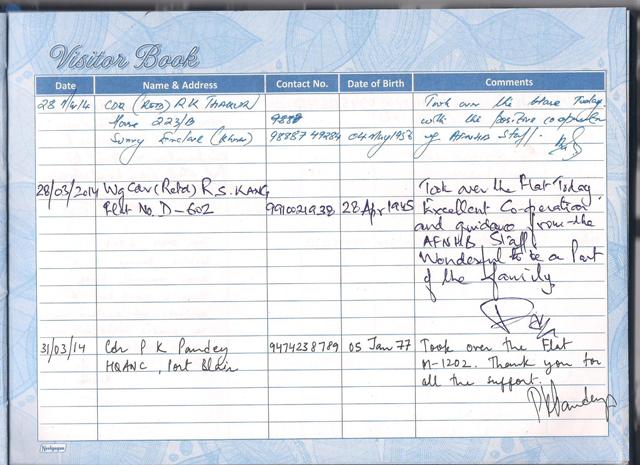 Visitor Book
Date Name & Address Contact No. Date of Birth Comments
CDR (RETD) R K THAKUR Took over the House Today
House 223/B 9888 with the positive cooperation
Sunny Enclave 98887 49284 04 May 1956 of AFNHB Staff.
28/03/2014 Wg Cdr (Retd) R.S. KANG Took over the Flat Today
Flat No. D-602 9910021938 28 Apr 1945 Excellent Co-operation
and guidance from the
AFNHB Staff.
Wonderful to be a Part
of the family
31/03/14 Cdr P K Pandey 9474238789 05 Jan 77 Took over the Flat
HQANC, Port Blair M-1202. Thank you for
all the support.
PKPandey
Neelgagan